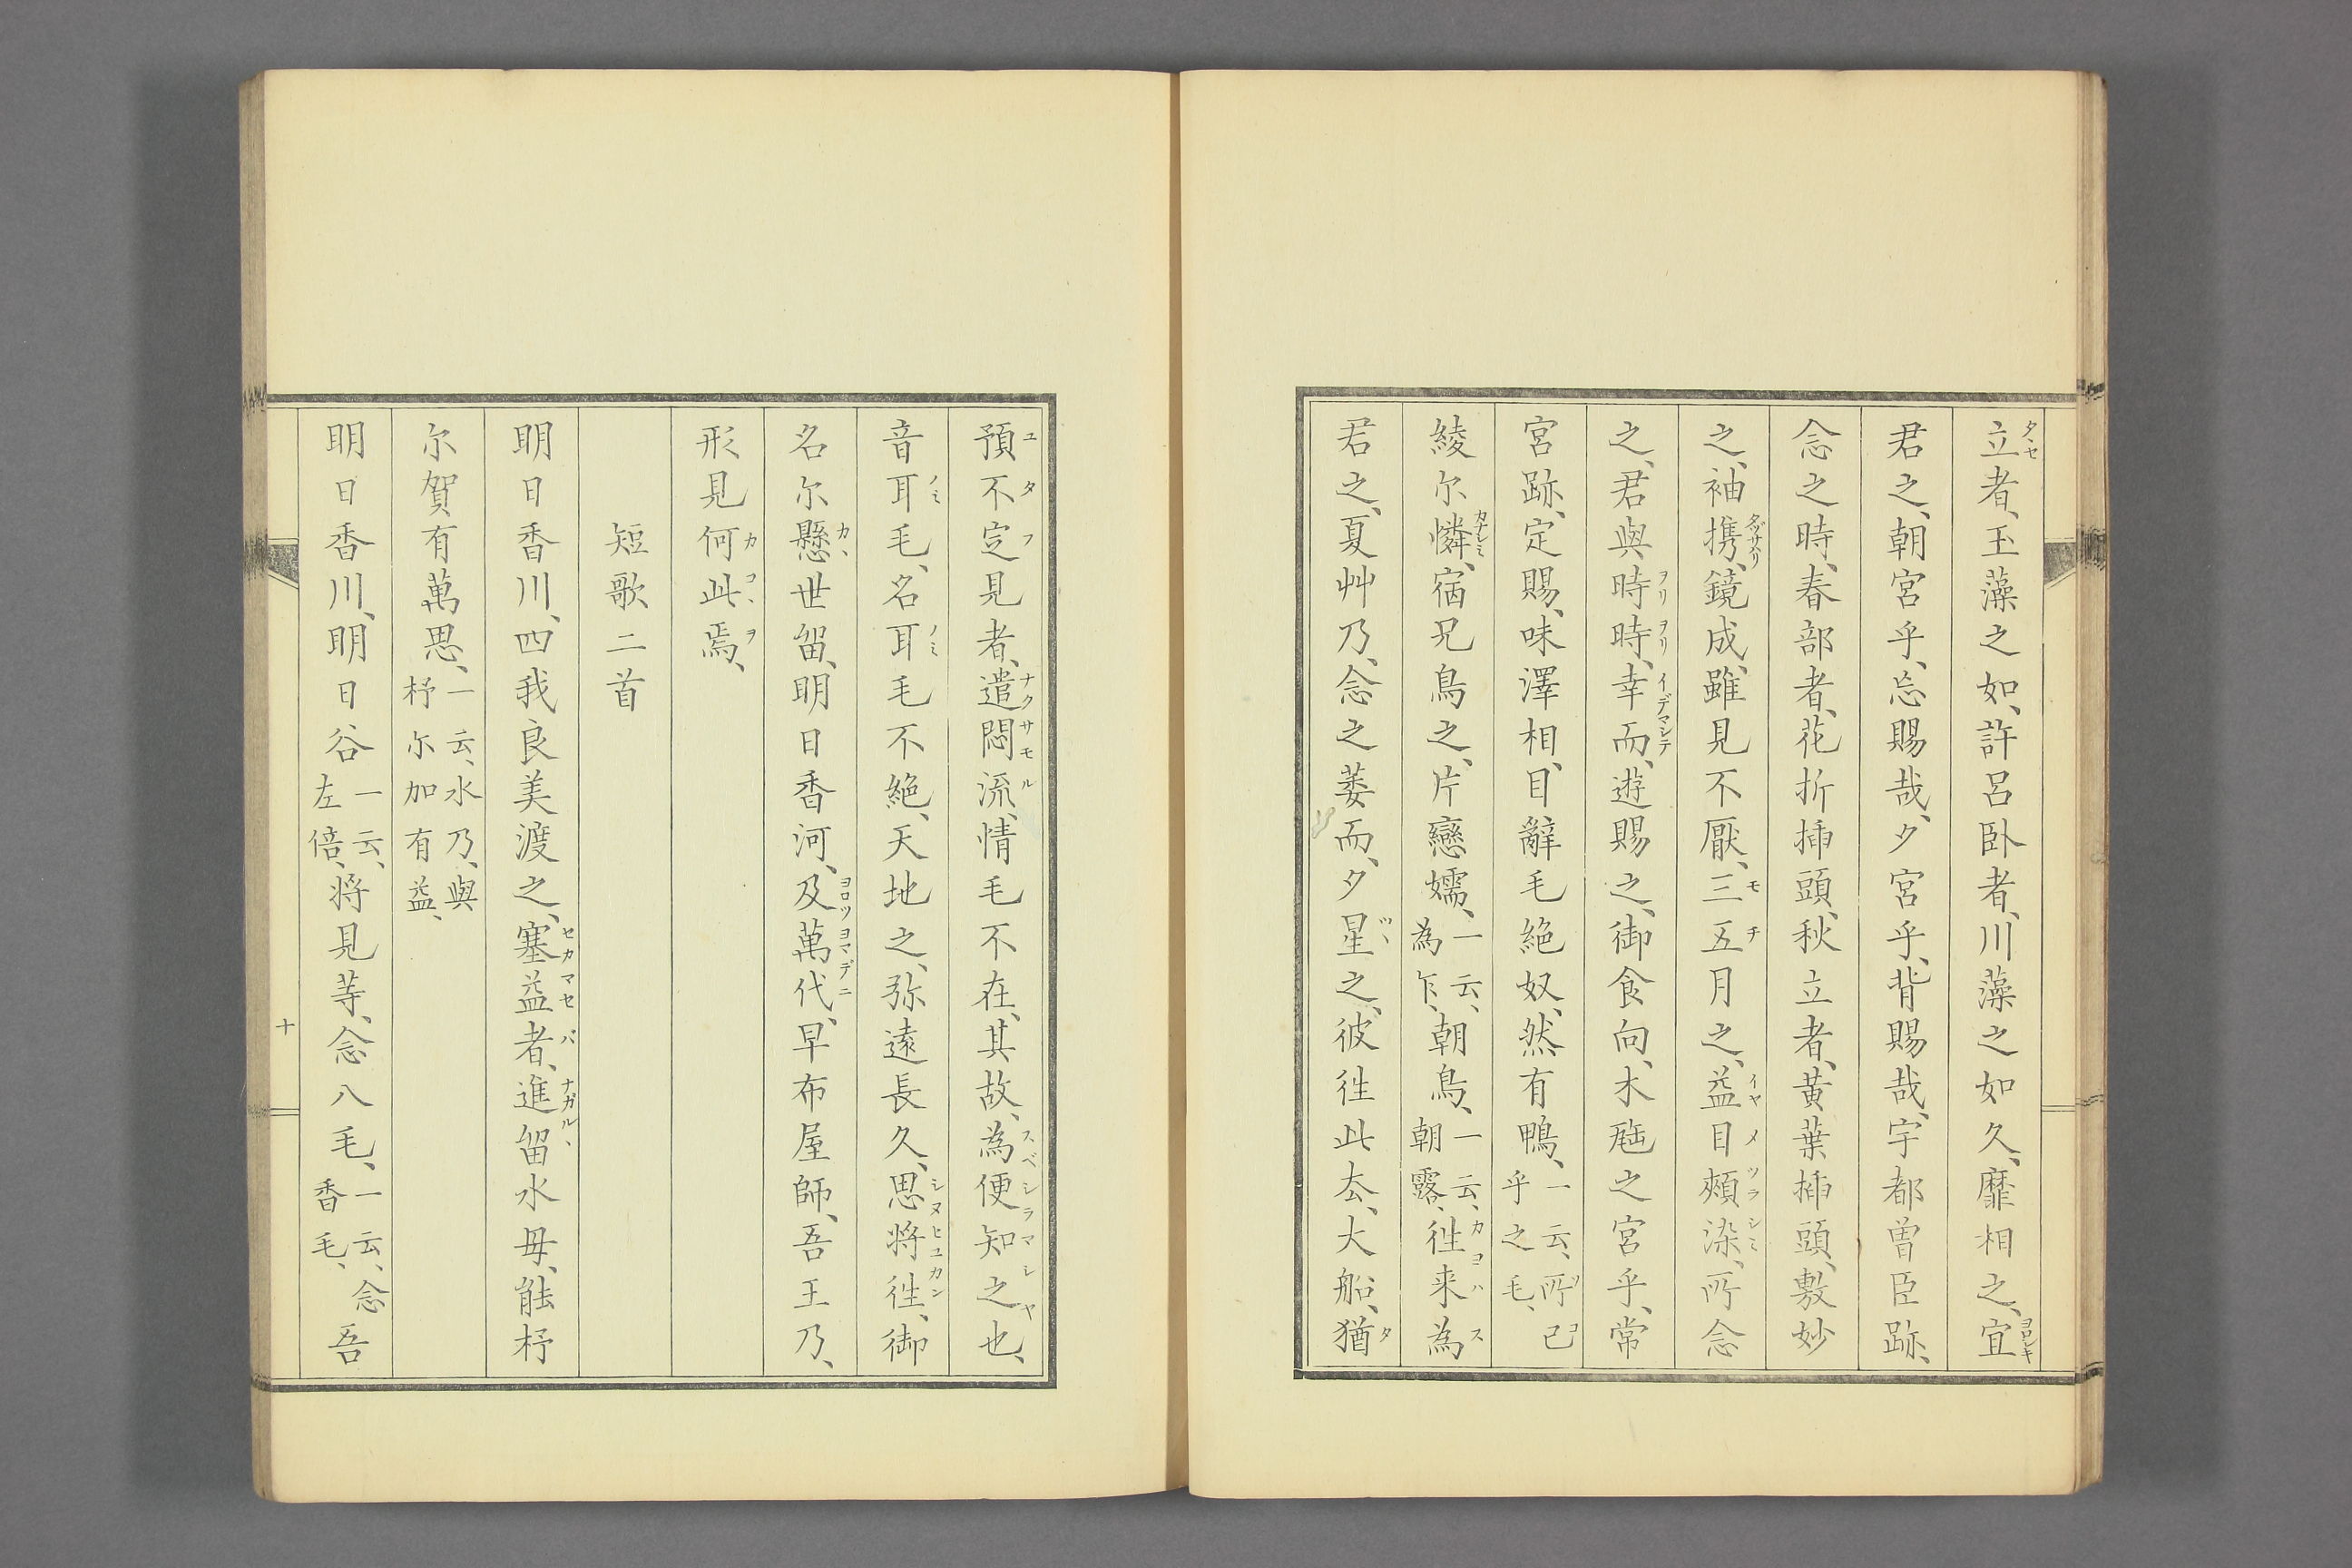 立者、玉藻之如、許呂臥者、川藻之如久、靡相之、宜
君之、朝宮乎、忘賜哉、夕宮乎、背賜哉、宇都曽臣跡、
念之時、春部者、花折挿頭、秋立者、黄葉挿頭、敷妙
之、袖携、鏡成、雖見不厭、三五月之、益目頬染、所念
之、君與時時、幸而、遊賜之、御食向、木𣆶之宮乎、常
宮跡、定賜、味澤相、目辭毛絶奴、然有鴨、一云、所己乎之毛、
綾尓憐、宿兄鳥之、片戀嬬、一云、為乍、朝鳥、一云、朝露、徃来為
君之、夏艸乃、念之萎而、夕星之、彼徃此去、大船、猶
預不定見者、遣悶流、情毛不在、其故、為便知之也、
音耳毛、名耳毛不絶、天地之、弥遠長久、思將徃、御
名尓懸世留、明日香河、及萬代、早布屋師、吾王乃、
形見何此焉、
短歌二首
明日香川、四我良美渡之、塞益者、進留水毋、能杼
尓賀有萬思、一云、水乃、與杼尓加有益、
明日香川、明日谷一云、左倍、将見等、念八毛、一云、念香毛、吾
十